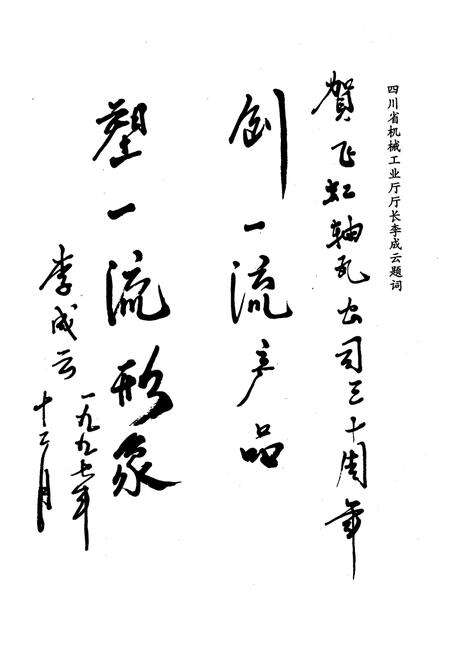 四川省机械工业厅厅长李成云题词
賀飞虹轴瓦公司三十周年
创一流产品
塑一流形象
李成云
一九九七年
十二月